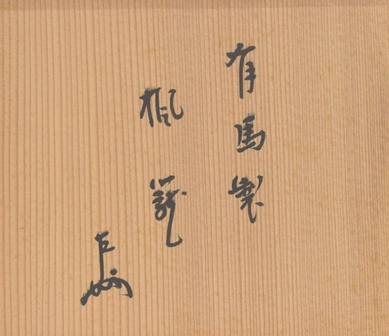 有馬製
楓籠